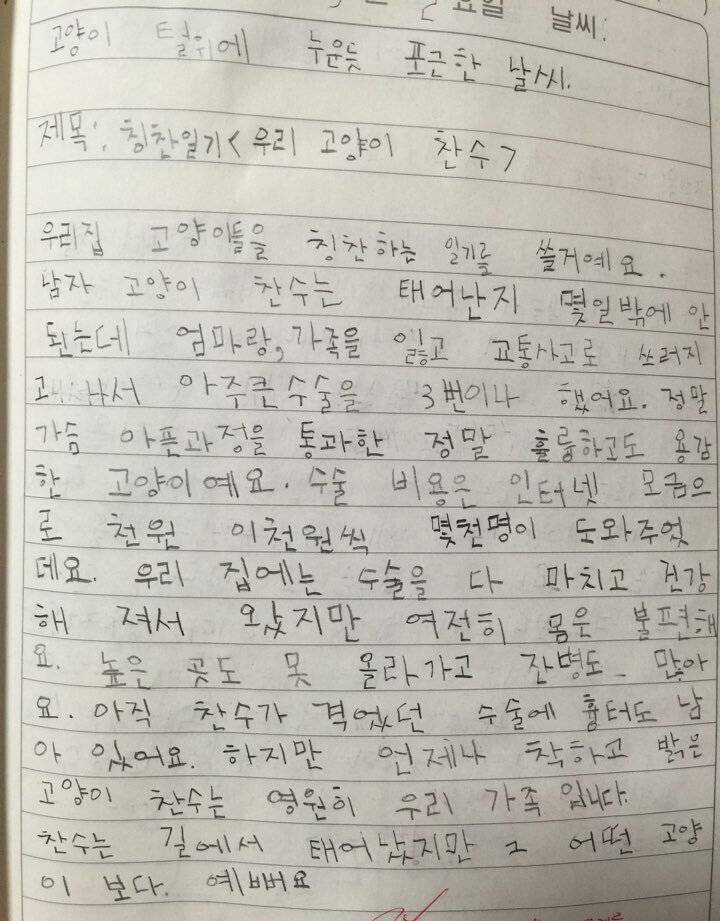 요일 날씨:
고양이 털위에 누운듯 포근한 날씨.
제목: 칭찬일기<우리 고양이 찬수>
우리집 고양이들을 칭찬하는 일기를 쓸거예요.
남자 고양이 찬수는 태어난지 몇일밖에 안
됬는데 엄마랑, 가족을 잃고 교통사고로 쓰러지
고 나서 아주큰수술을 3번이나 했어요. 정말
가슴 아픈과정을 통과한 정말 훌륭하고도 용감
한 고양이예요. 수술 비용은 인터넷 모금으
로 천원 이천원씩 몇천명이 도와주었
데요. 우리 집에는 수술을 다 마치고 건강
해 져서 왔지만 여전히 몸은 불편해
요. 높은 곳도 못 올라가고 잔병도 많아
요. 아직 찬수가 격었던 수술에 흉터도 남
아 있어요. 하지만 언제나 착하고 밝은
고양이 찬수는 영원히 우리 가족 입니다.
찬수는 길에서 태어났지만 그 어떤 고양
이 보다. 예뻐요